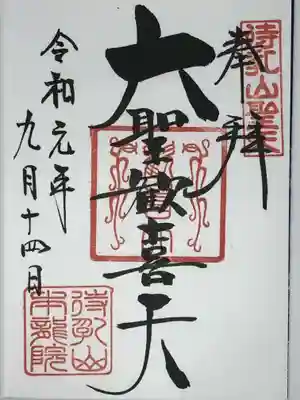 待乳山聖
奉拝
大聖歓喜天
令和元年
九月十四日
待乳山
本龍院